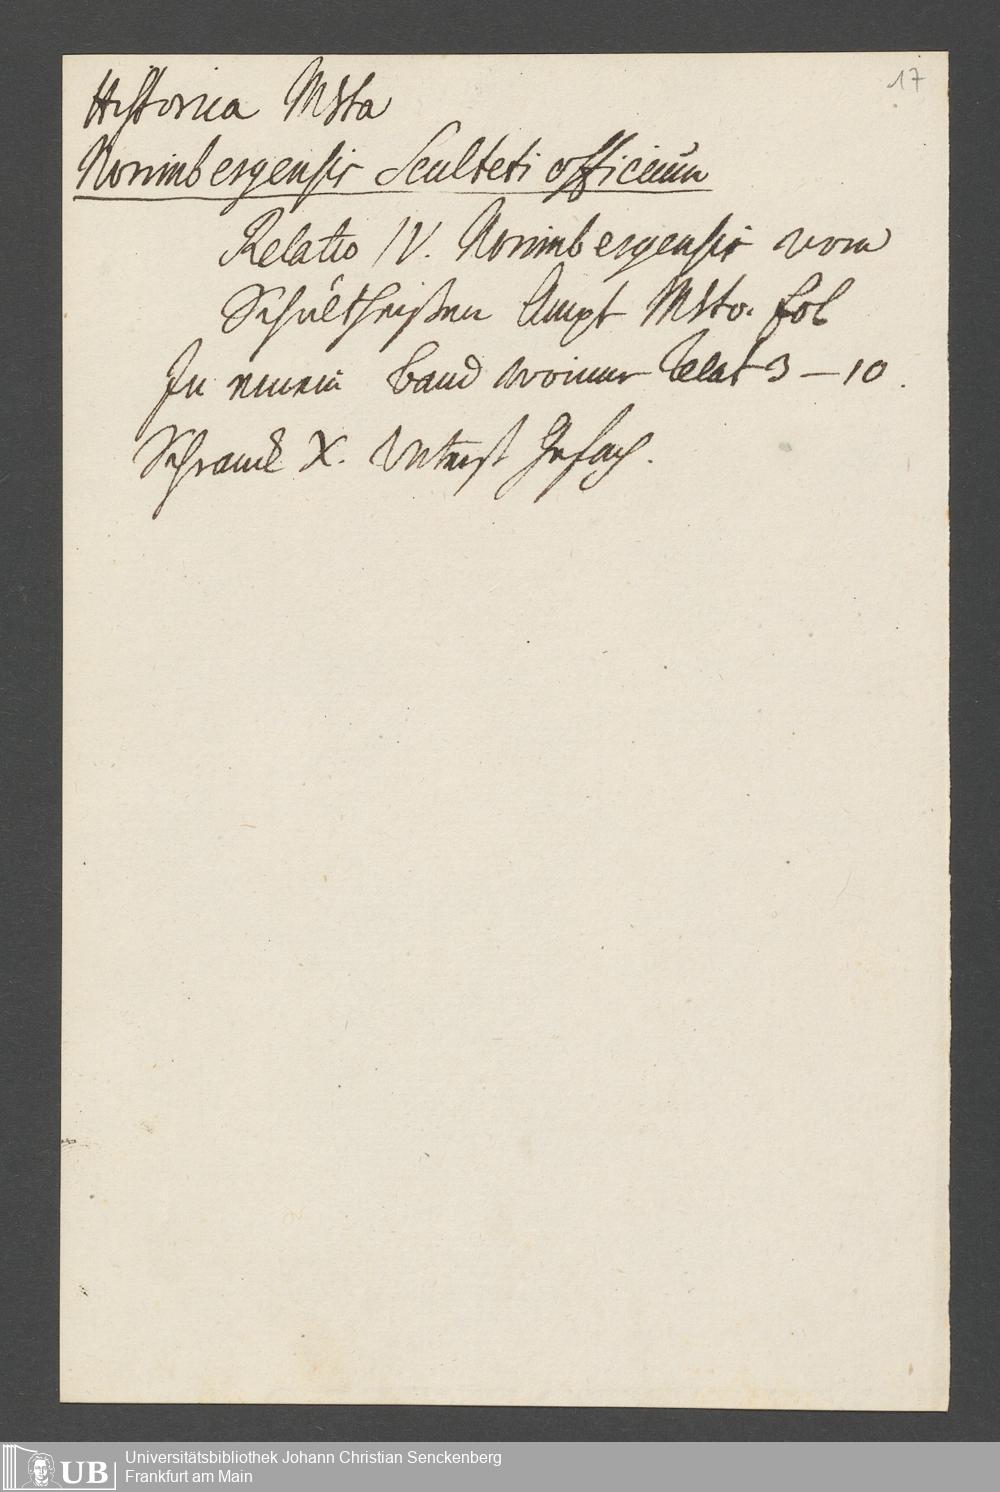 17
Historica Msta
Norimbergensis Sculteti officium
Relatio IV. Norimbergensis vom
Schultheißen Ampt Msto. fol
In einem band worinnen Relat 3 – 10.
Schranck X. Unterst Gefach.
UB
Universitätsbibliothek Johann Christian Senckenberg
Frankfurt am Main